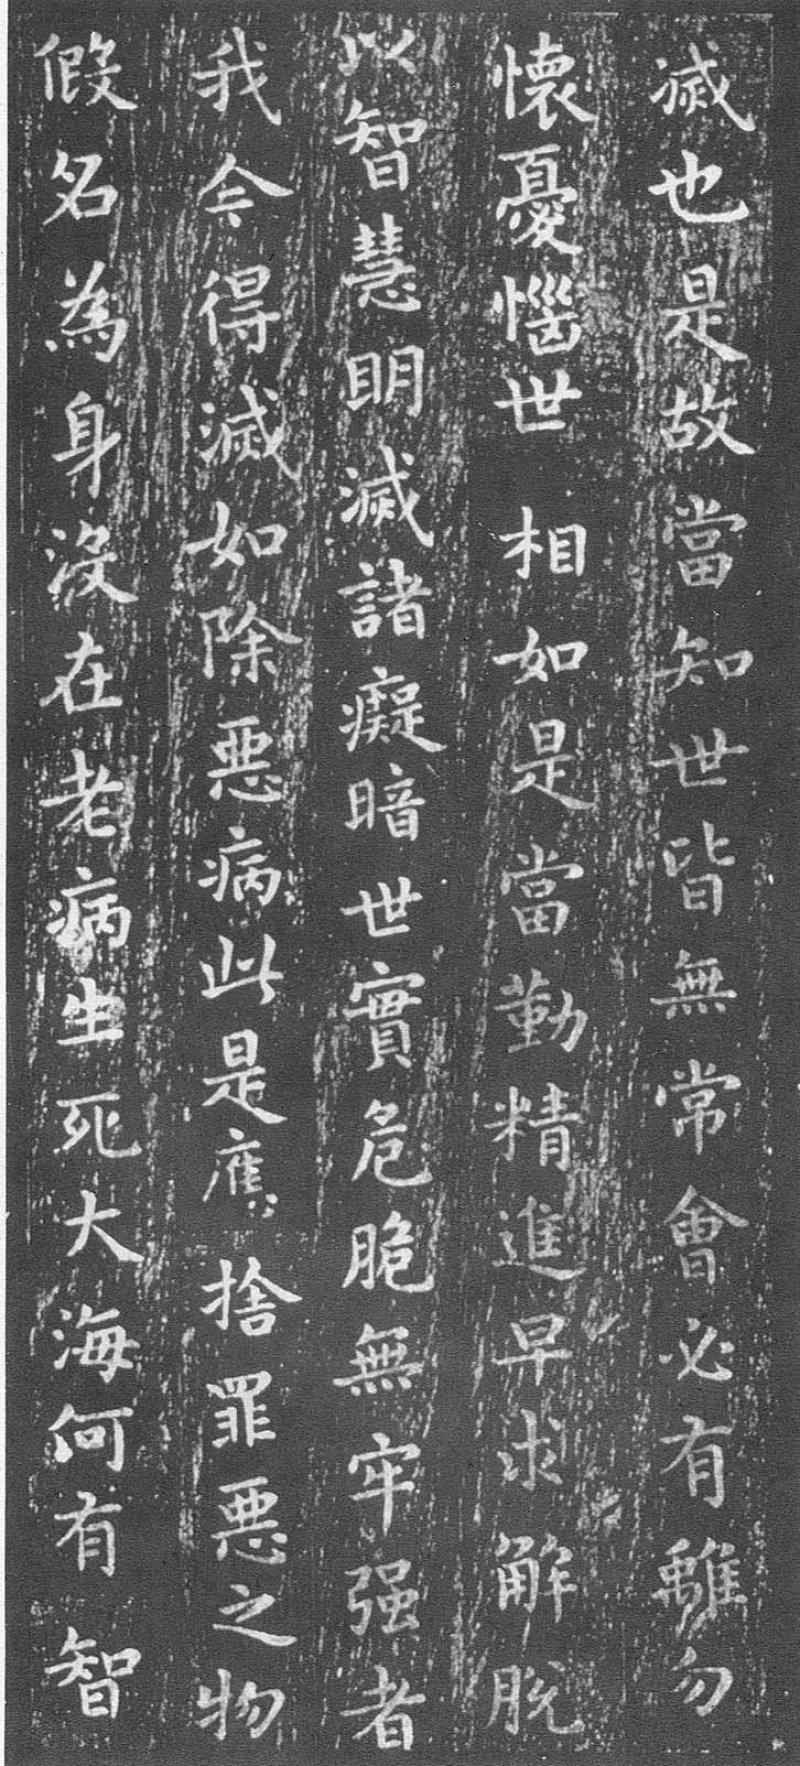 滅也是故當知世皆無常會必有離勿
懷憂惱世相如是當勤精進早求解脫
以智慧明滅諸癡暗世實危脆無牢强者
我今得滅如除惡病此是應捨罪惡之物
假名為身沒在老病生死大海何有智